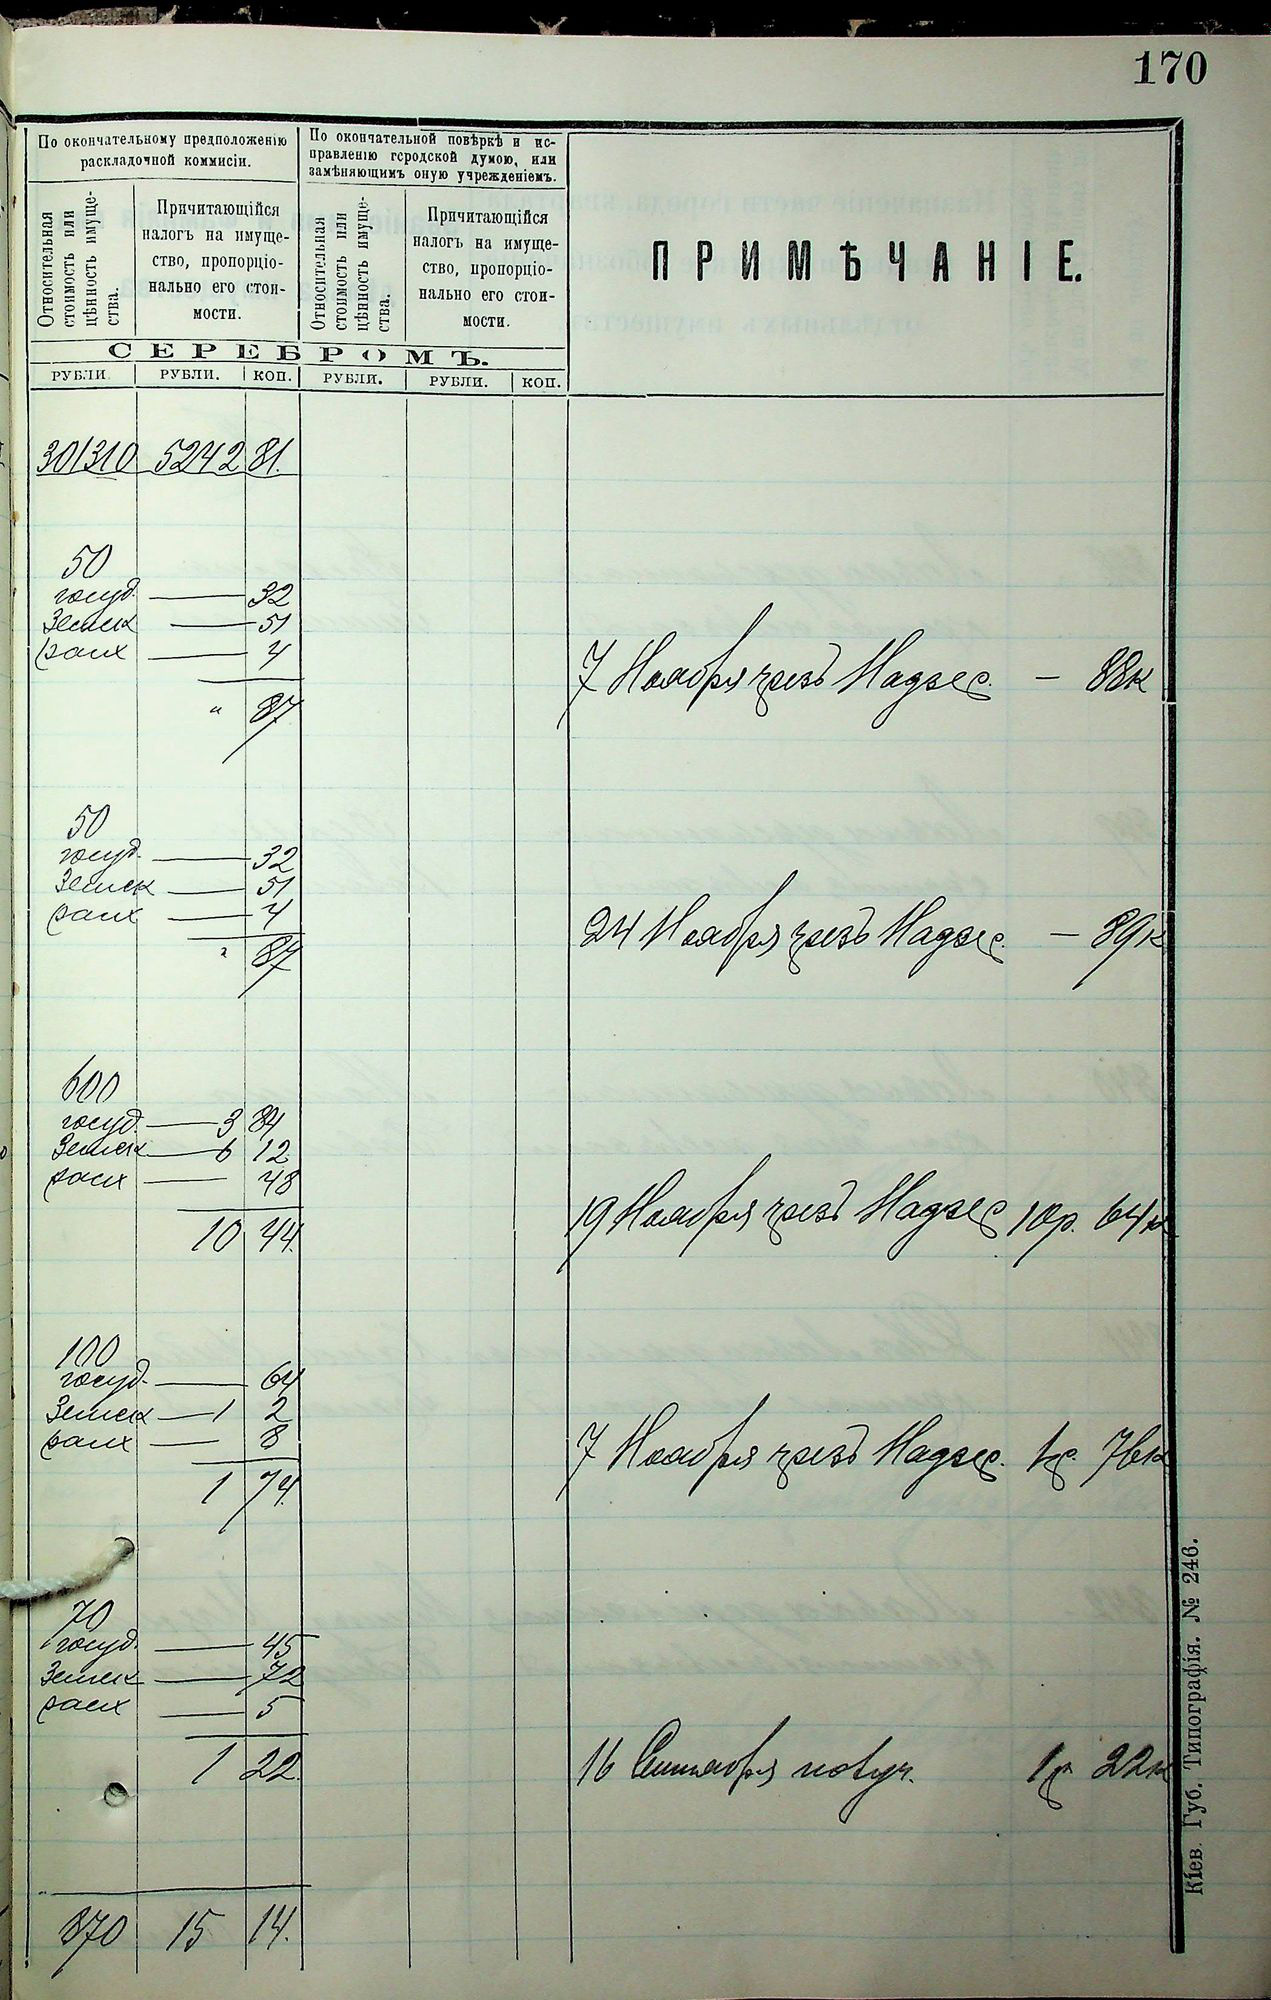 170
По окончательному предположенію
раскладочной коммисіи.
По окончательной повѣркѣ и ис-
правленію городской думою, или
замѣняющимъ оную учрежденіемъ.
Относительная
стоимость или
цѣнность имуще-
ства.
Причитающійся
налогъ на имуще-
ство, пропорціо-
нально его стои-
мости.
Относительная
стоимость или
цѣнность имуще-
ства.
Причитающійся
налогъ на имуще-
ство, пропорціо-
нально его стои-
мости.
ПРИМѢЧАНІЕ.
СЕРЕБРОМЪ.
РУБЛИ. РУБЛИ. КОП. РУБЛИ. РУБЛИ. КОП.
301310 5242 81.
50
госуд. — 32
Земск — 51
4
7 Ноября чрезъ Надзес. — 88к
" 87
50
госуд. — 32
Земск — 51
4
24 Ноября чрезъ Надзес. — 89к
" 87
600
госуд. — 3 84
Земск — 6 12
— 48
19 Ноября чрезъ Надзес 10р. 64к
10 44.
100
госуд. — 64
Земск — 1 2
— 8
7 Ноября чрезъ Надзес. 1р. 76к
1 74.
70
госуд. — 45
Земск — 72
— 5
1 22.
16 Сентября 1р 22к
870 15 14.
Кіев. Губ. Типографія. № 246.